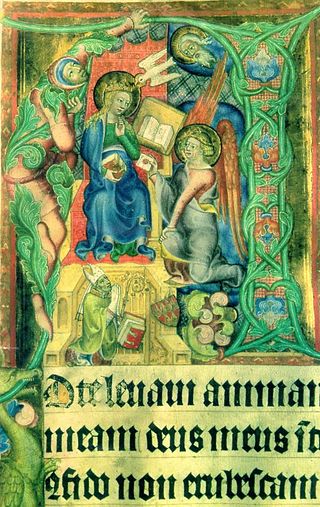 Ad te leuaui animam
meam deus meus ī
ꝯfido non erubescam